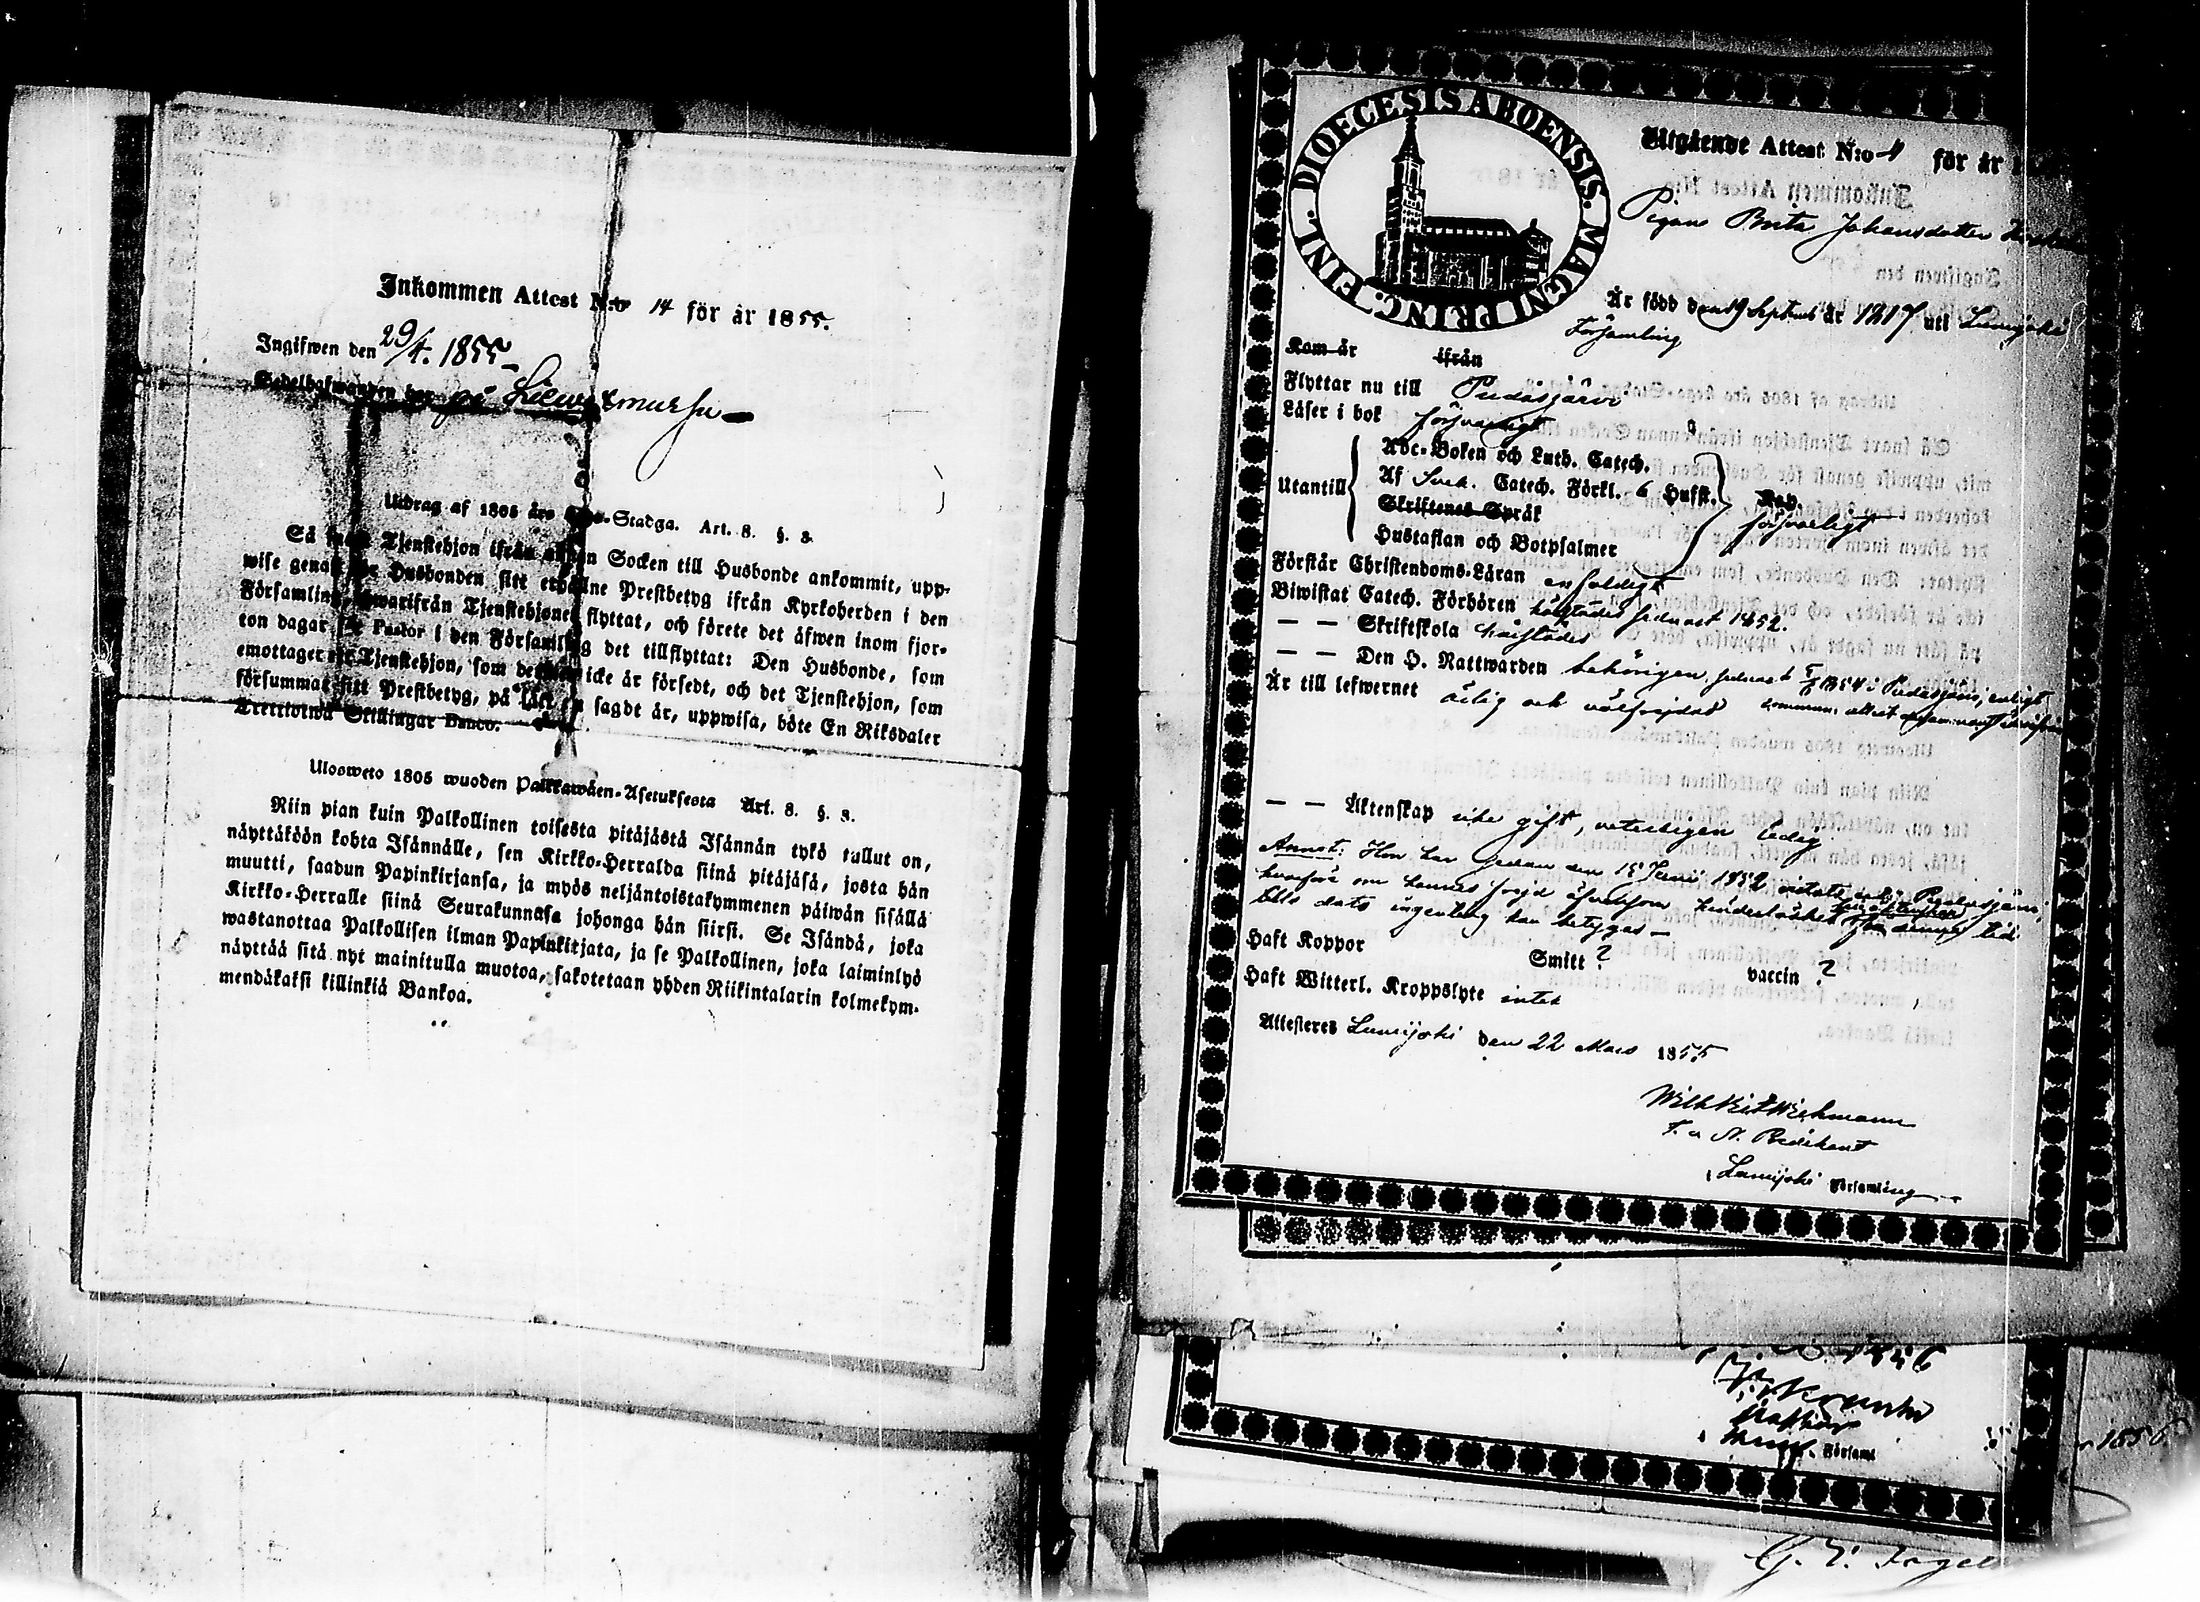 Inkommen Attest N:o 14 för år 1855.
Ingifwen den 29/4. 1855
på
Utdrag af 1805 års Stadga. Art. 8. §. 3.
Så Tjenstehjon ifrån Socken till Husbonde ankommit, upp-
wise Husbonden sitt erhållne Prestbetyg ifrån Kyrkoherden i den
Församling, hwarifrån Tjenstehjonet flyttat, och förete det äfwen inom fjor-
ton dagar för Pastor i den Församling det tillflyttat: Den Husbonde, som
emottager Tjenstehjon, som icke är försedt, och det Tjenstehjon, som
försummat sitt Prestbetyg, på sagdt är, uppwisa, böte En Riksdaler
Trettiotwå Skillingar Banco.
Ulosweto 1805 wuoden Palkkawäen-Asetuksesta Art. 8. §. 3.
Niin pian kuin Palkollinen toisesta pitäjästä Isännän tykö tullut on,
näyttäköön kohta Isännälle, sen Kirkko-Herralda siinä pitäjäsä, josta hän
muutti, saadun Papinkirjansa, ja myös neljäntoistakymmenen päiwän sisällä
Kirkko-Herralle siinä Seurakunnasa johonga hän siirsi. Se Isändä, joka
wastanottaa Palkollisen ilman Papinkirjata, ja se Palkollinen, joka laiminlyö
näyttää sitä nyt mainitulla muotoa, sakotetaan yhden Riikintalarin kolmekym-
mendäkaksi killinkiä Bankoa.
DIOECESIS ABOENSIS. MAGNI PRINC. FINL.
Utgående Attest N:o 4 för år
Pigan Brita Johansdotter
Är född den 9 Septemb år 1817 uti Lumijoki
Församling
Kom år ifrån
Flyttar nu till Pudasjärvi
Läser i bok försvarligt
Abc-Boken och Luth. Catech.
Utantill Af Sveb. Catech. Förkl. 6 Hufst.
Skriftenes Språk
försvarligt
Hustaflan och Botpsalmer
Förstår Christendoms-Läran enfaldigt
Biwistat Catech. Förhören härstädes sednast 1852.
— — Skriftskola härstädes
— — Den H. Nattwarden behörigen, sednast 1854 i Pudasjärvi, enligt
Är till lefwernet ärlig och välfrejdad
— — Äktenskap icke gift, veterligen ledig
Annot: Hon har sedan den 15 Juni 1852 vistats i Pudasjärvi,
hvarföre om hennes frejd äfvensom hinderlöshet denna tid
tills dato ingenting kan betygas —
Haft Koppor Smitt ? vaccin ?
Haft Witterl. Kroppslyte intet
Attesteres Lumijoki den 22 Mars 1855
Wichmann
Predikant
i Lumijoki Församling
1856
Församl
1856